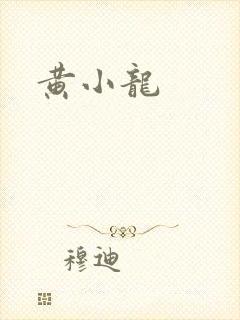 黄小龍
穆迪